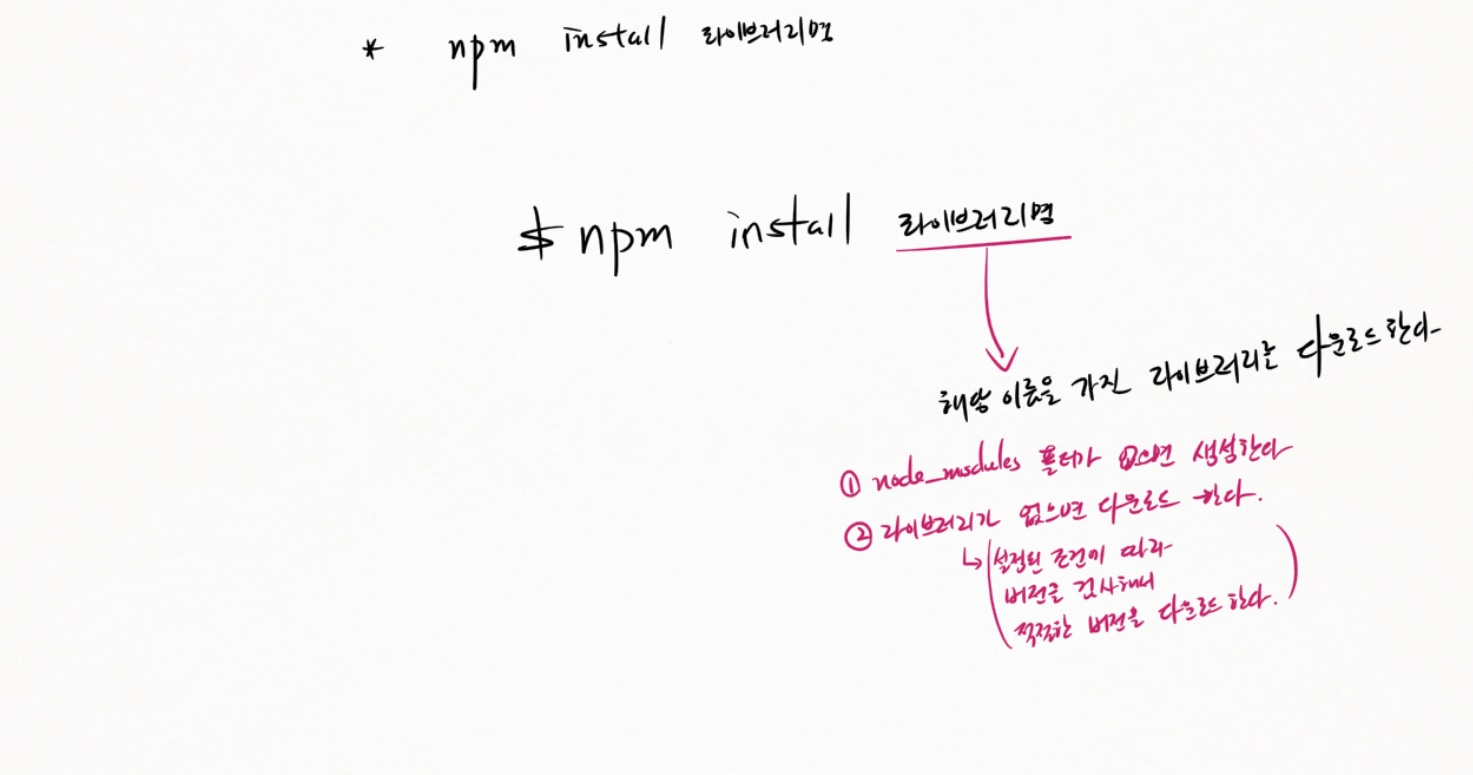 * npm install 라이브러리명
$ npm install 라이브러리명
해당 이름을 가진 라이브러리를 다운로드한다
① node_modules 폴더가 없으면 생성한다
② 라이브러리가 없으면 다운로드 한다.
↳ (설정된 조건에 따라
버전을 검사해서
적절한 버전을 다운로드 한다.)